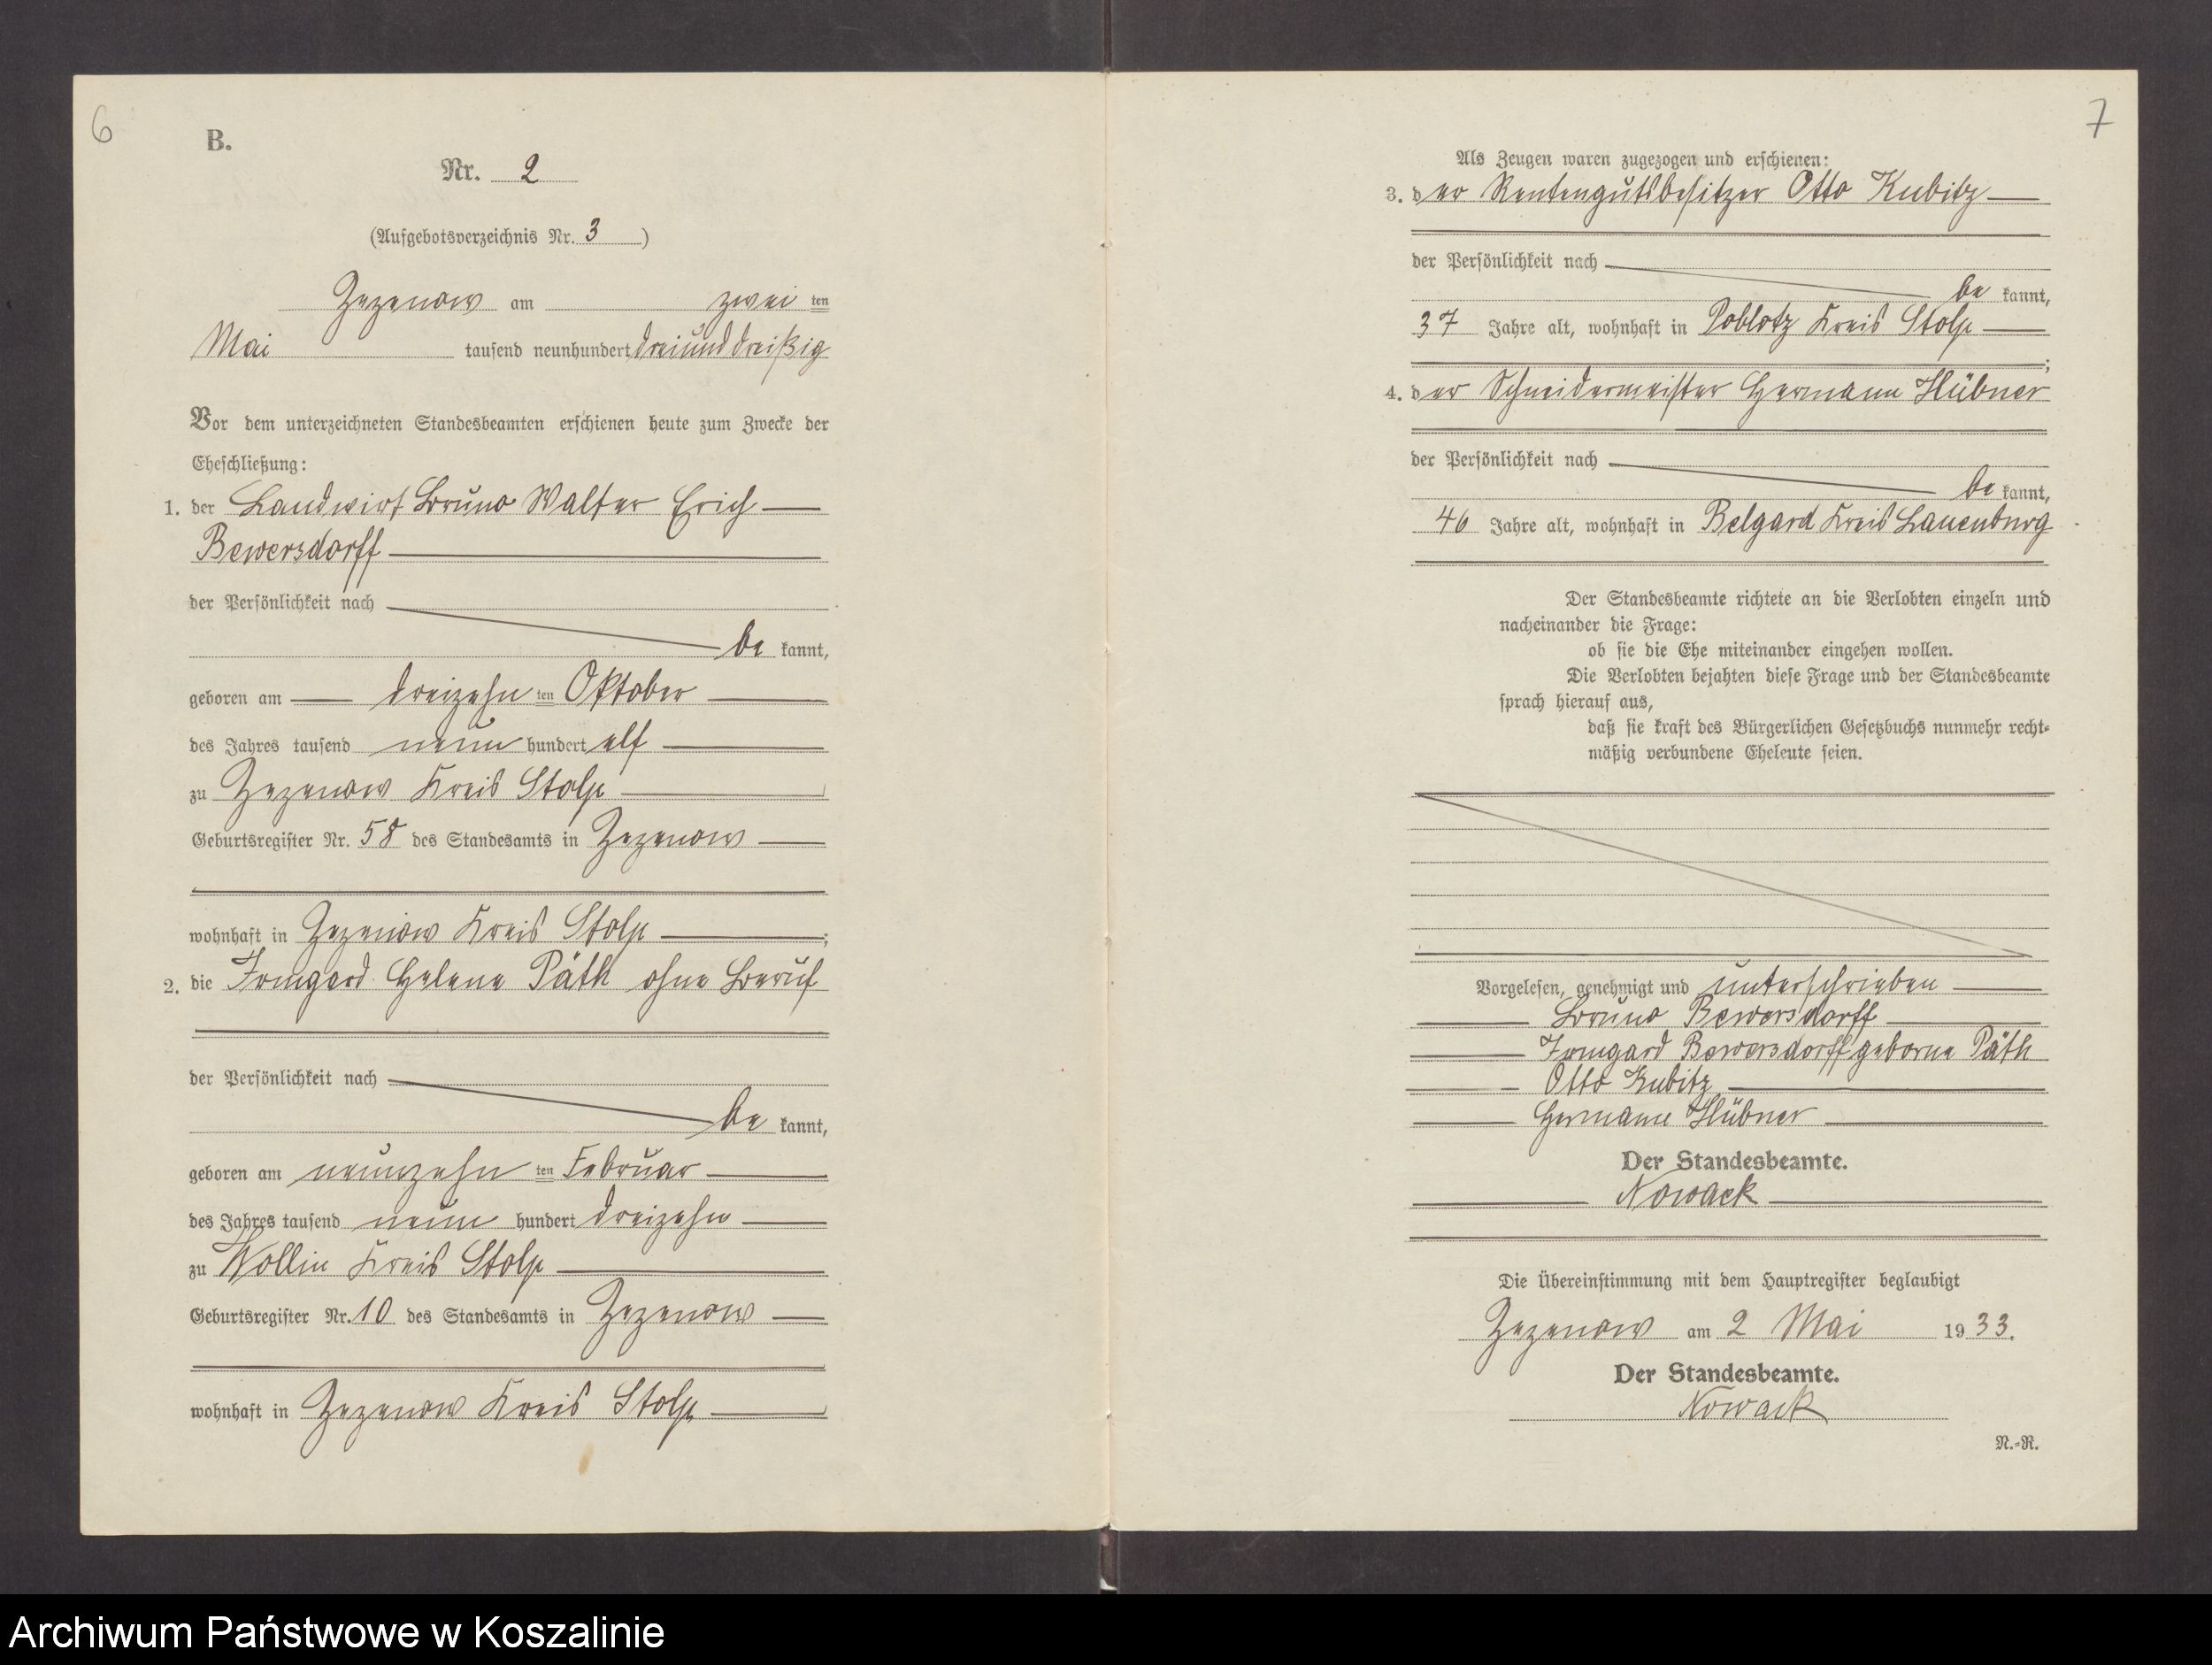 6
B.
Nr. 2
(Aufgebotsverzeichnis Nr. 3)
Zezenow am zwei ten
Mai tausend neunhundert dreiunddreißig
Vor dem unterzeichneten Standesbeamten erschienen heute zum Zwecke der
Eheschließung:
1. der Landwirt Bruno Walter Erich
Bewersdorff
der Persönlichkeit nach
be kannt,
geboren am dreizehn ten Oktober
des Jahres tausend neun hundert elf
zu Zezenow Kreis Stolp,
Geburtsregister Nr. 58 des Standesamts in Zezenow
wohnhaft in Zezenow Kreis Stolp;
2. die Irmgard Helene Päth ohne Beruf
der Persönlichkeit nach
be kannt,
geboren am neunzehn ten Februar
des Jahres tausend neun hundert dreizehn
zu Wollin Kreis Stolp
Geburtsregister Nr. 10 des Standesamts in Zezenow
wohnhaft in Zezenow Kreis Stolp,
7
Als Zeugen waren zugezogen und erschienen:
3. der Rentengutsbesitzer Otto Kubitz
der Persönlichkeit nach
be kannt,
37 Jahre alt, wohnhaft in Poblotz Kreis Stolp
;
4. der Schneidermeister Hermann Hübner
der Persönlichkeit nach
be kannt,
46 Jahre alt, wohnhaft in Belgard Kreis Lauenburg.
Der Standesbeamte richtete an die Verlobten einzeln und
nacheinander die Frage:
ob sie die Ehe miteinander eingehen wollen.
Die Verlobten bejahten diese Frage und der Standesbeamte
sprach hierauf aus,
daß sie kraft des Bürgerlichen Gesetzbuchs nunmehr recht-
mäßig verbundene Eheleute seien.
Vorgelesen, genehmigt und unterschrieben
Bruno Bewersdorff
Irmgard Bewersdorff geborne Päth
Otto Kubitz
Hermann Hübner
Der Standesbeamte.
Nowack
Die Übereinstimmung mit dem Hauptregister beglaubigt
Zezenow am 2 Mai 1933.
Der Standesbeamte.
Nowack
N.-R.
Archiwum Państwowe w Koszalinie